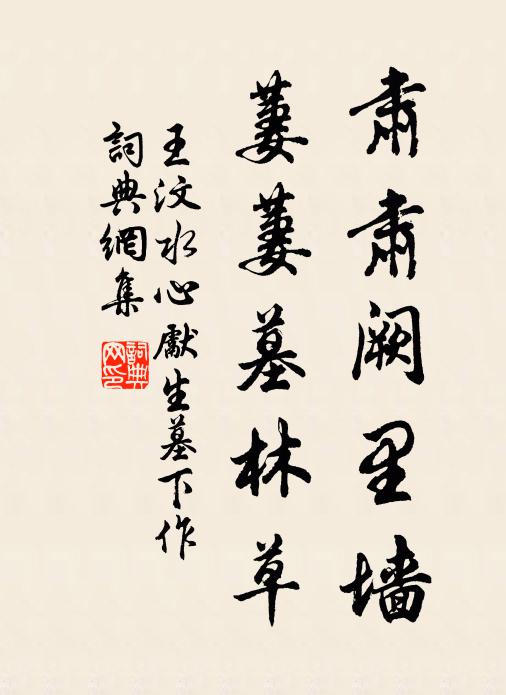 肅肅闕里墙
萋萋墓林草
王汶水心獻生墓下作
詞典網集
詞典网印